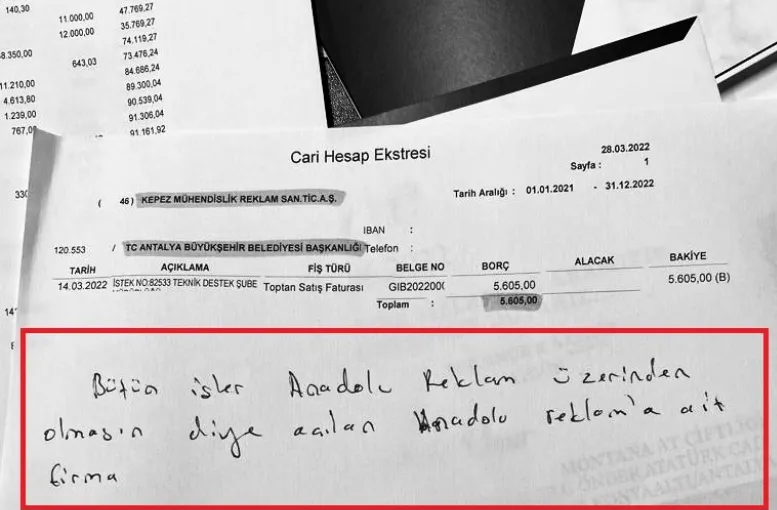 140,30
11.000,00 47.769,27
12.000,00 35.769,27
74.119,27
8.350,00 643,03 73.476,24
84.686,24
11.210,00 89.300,04
4.613,80 90.539,04
1.239,00 91.306,04
767,00 91.161,92
330
Cari Hesap Ekstresi
28.03.2022
Sayfa : 1
( 46) KEPEZ MÜHENDİSLİK REKLAM SAN.TİC.A.Ş.
Tarih Aralığı : 01.01.2021 - 31.12.2022
IBAN :
120.553 / TC ANTALYA BÜYÜKŞEHİR BELEDİYESİ BAŞKANLIĞI Telefon :
TARİH AÇIKLAMA FİŞ TÜRÜ BELGE NO BORÇ ALACAK BAKİYE
14.03.2022 İSTEK NO:82533 TEKNİK DESTEK ŞUBE Toptan Satış Faturası GIB202200( 5.605,00 5.605,00 (B)
Toplam : 5.605,00
Bütün işler Anadolu Reklam üzerinden
olmasın diye açılan Anadolu reklam'a ait
firma
MONTANA AT ÇİFTLİĞİ
ÖNDER ATATÜRK CAD
KONYAALTI/ANTALYA